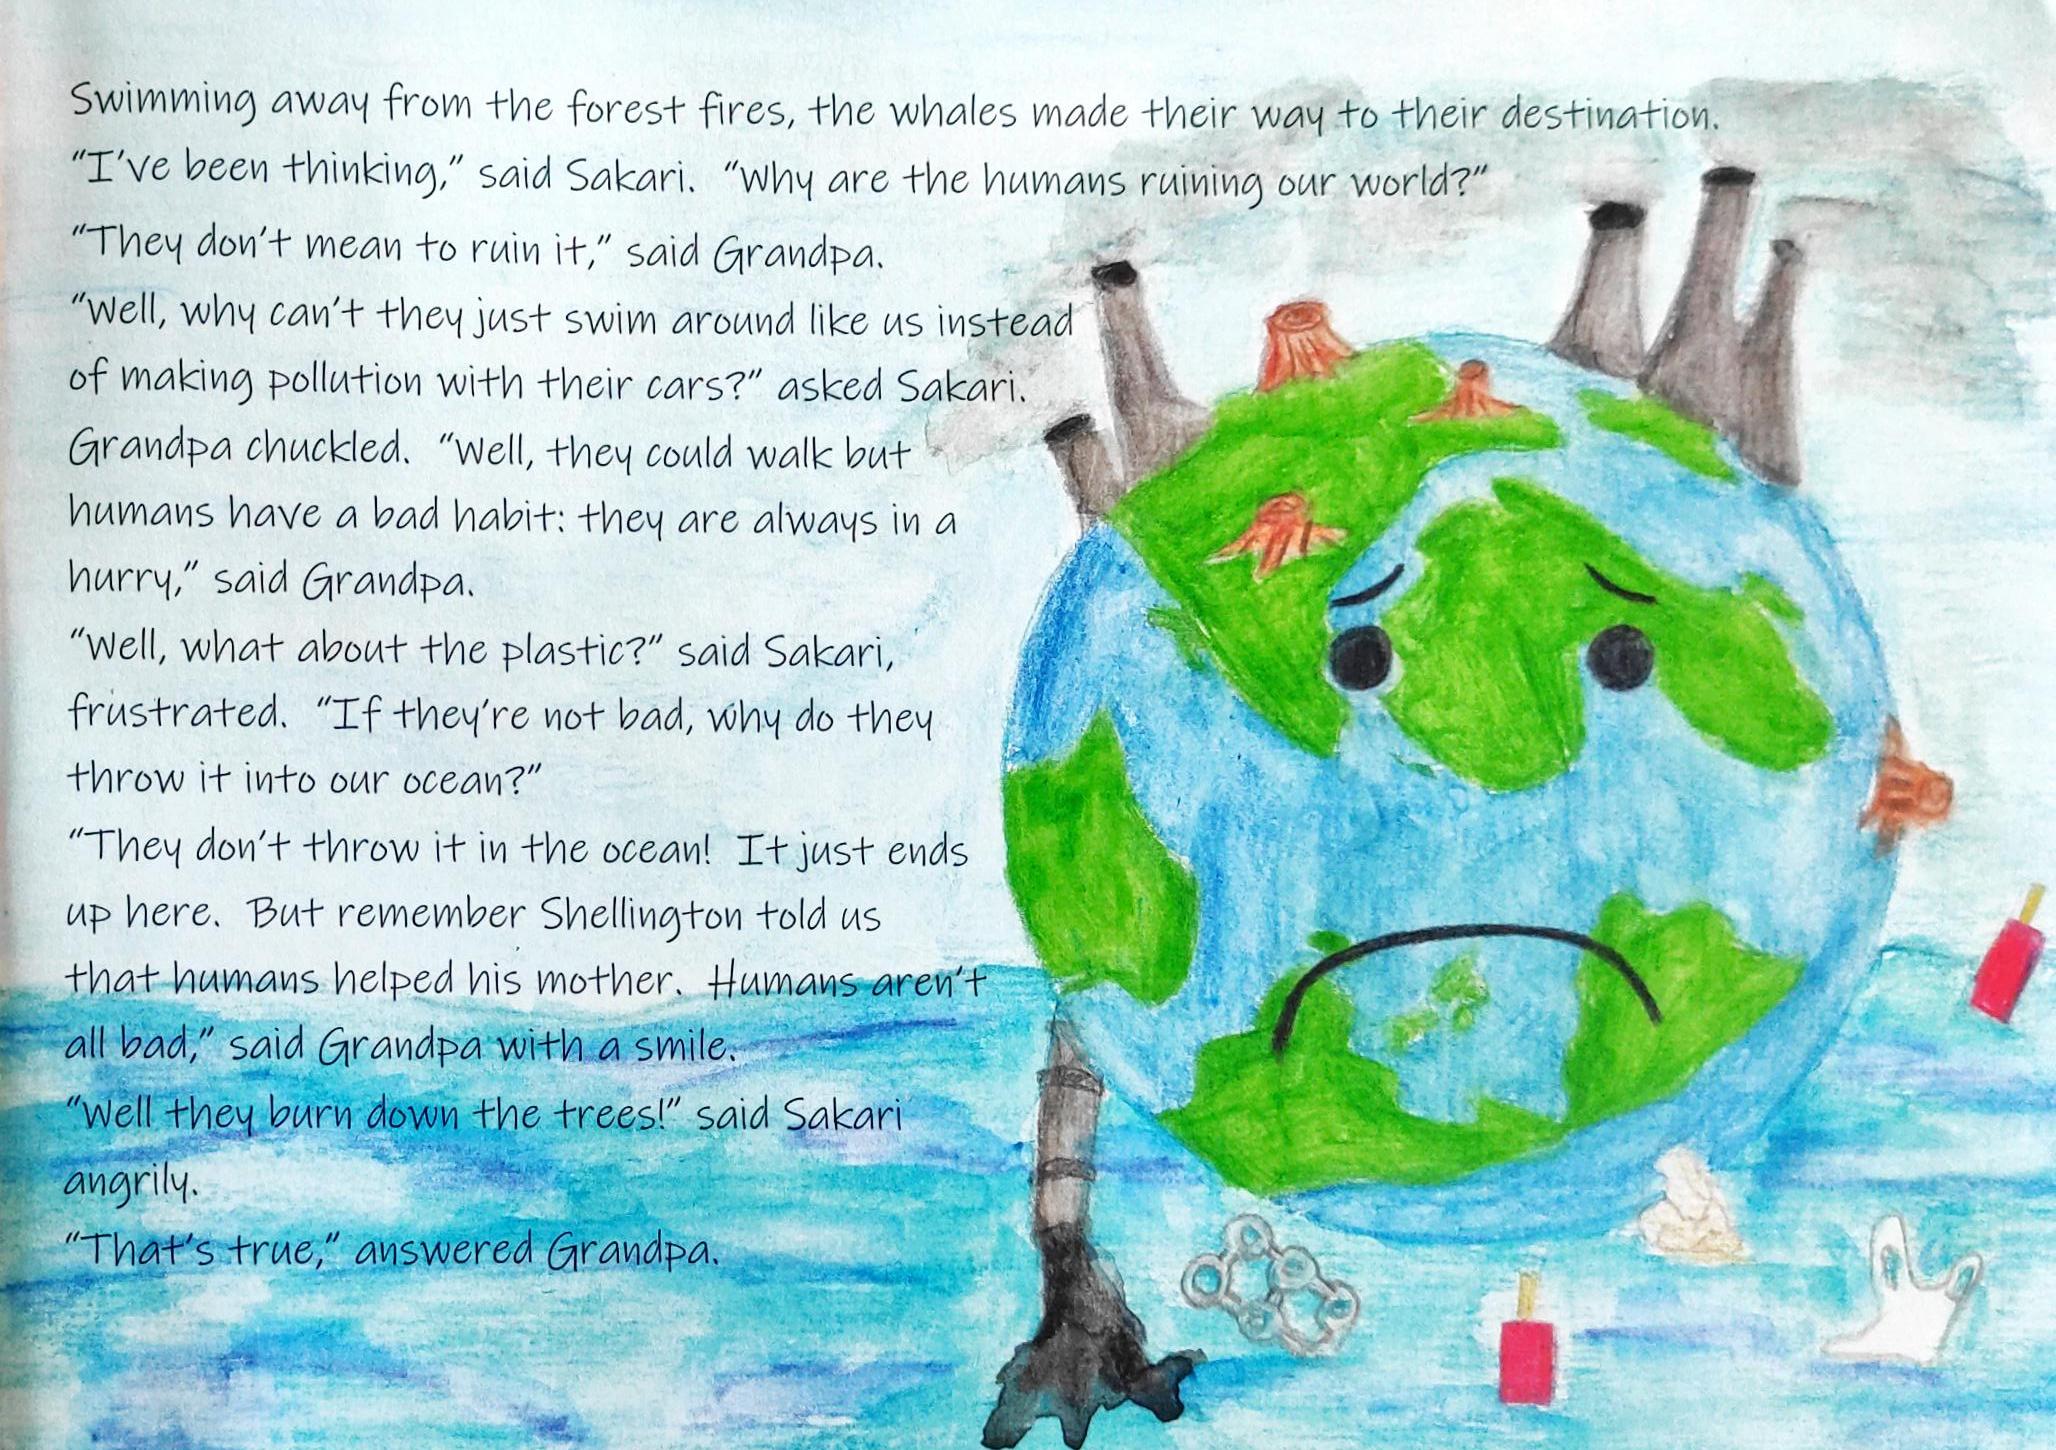 Swimming away from the forest fires, the whales made their way to their destination.
“I’ve been thinking,” said Sakari.  “Why are the humans ruining our world?”
“They don’t mean to ruin it,” said Grandpa.
“Well, why can’t they just swim around like us instead
of making pollution with their cars?” asked Sakari.
Grandpa chuckled.  “Well, they could walk but
humans have a bad habit: they are always in a
hurry,” said Grandpa.
“Well, what about the plastic?” said Sakari,
frustrated.  “If they’re not bad, why do they
throw it into our ocean?”
“They don’t throw it in the ocean!  It just ends
up here.  But remember Shellington told us
that humans helped his mother.  Humans aren’t
all bad,” said Grandpa with a smile.
“Well they burn down the trees!” said Sakari
angrily.
“That’s true,” answered Grandpa.